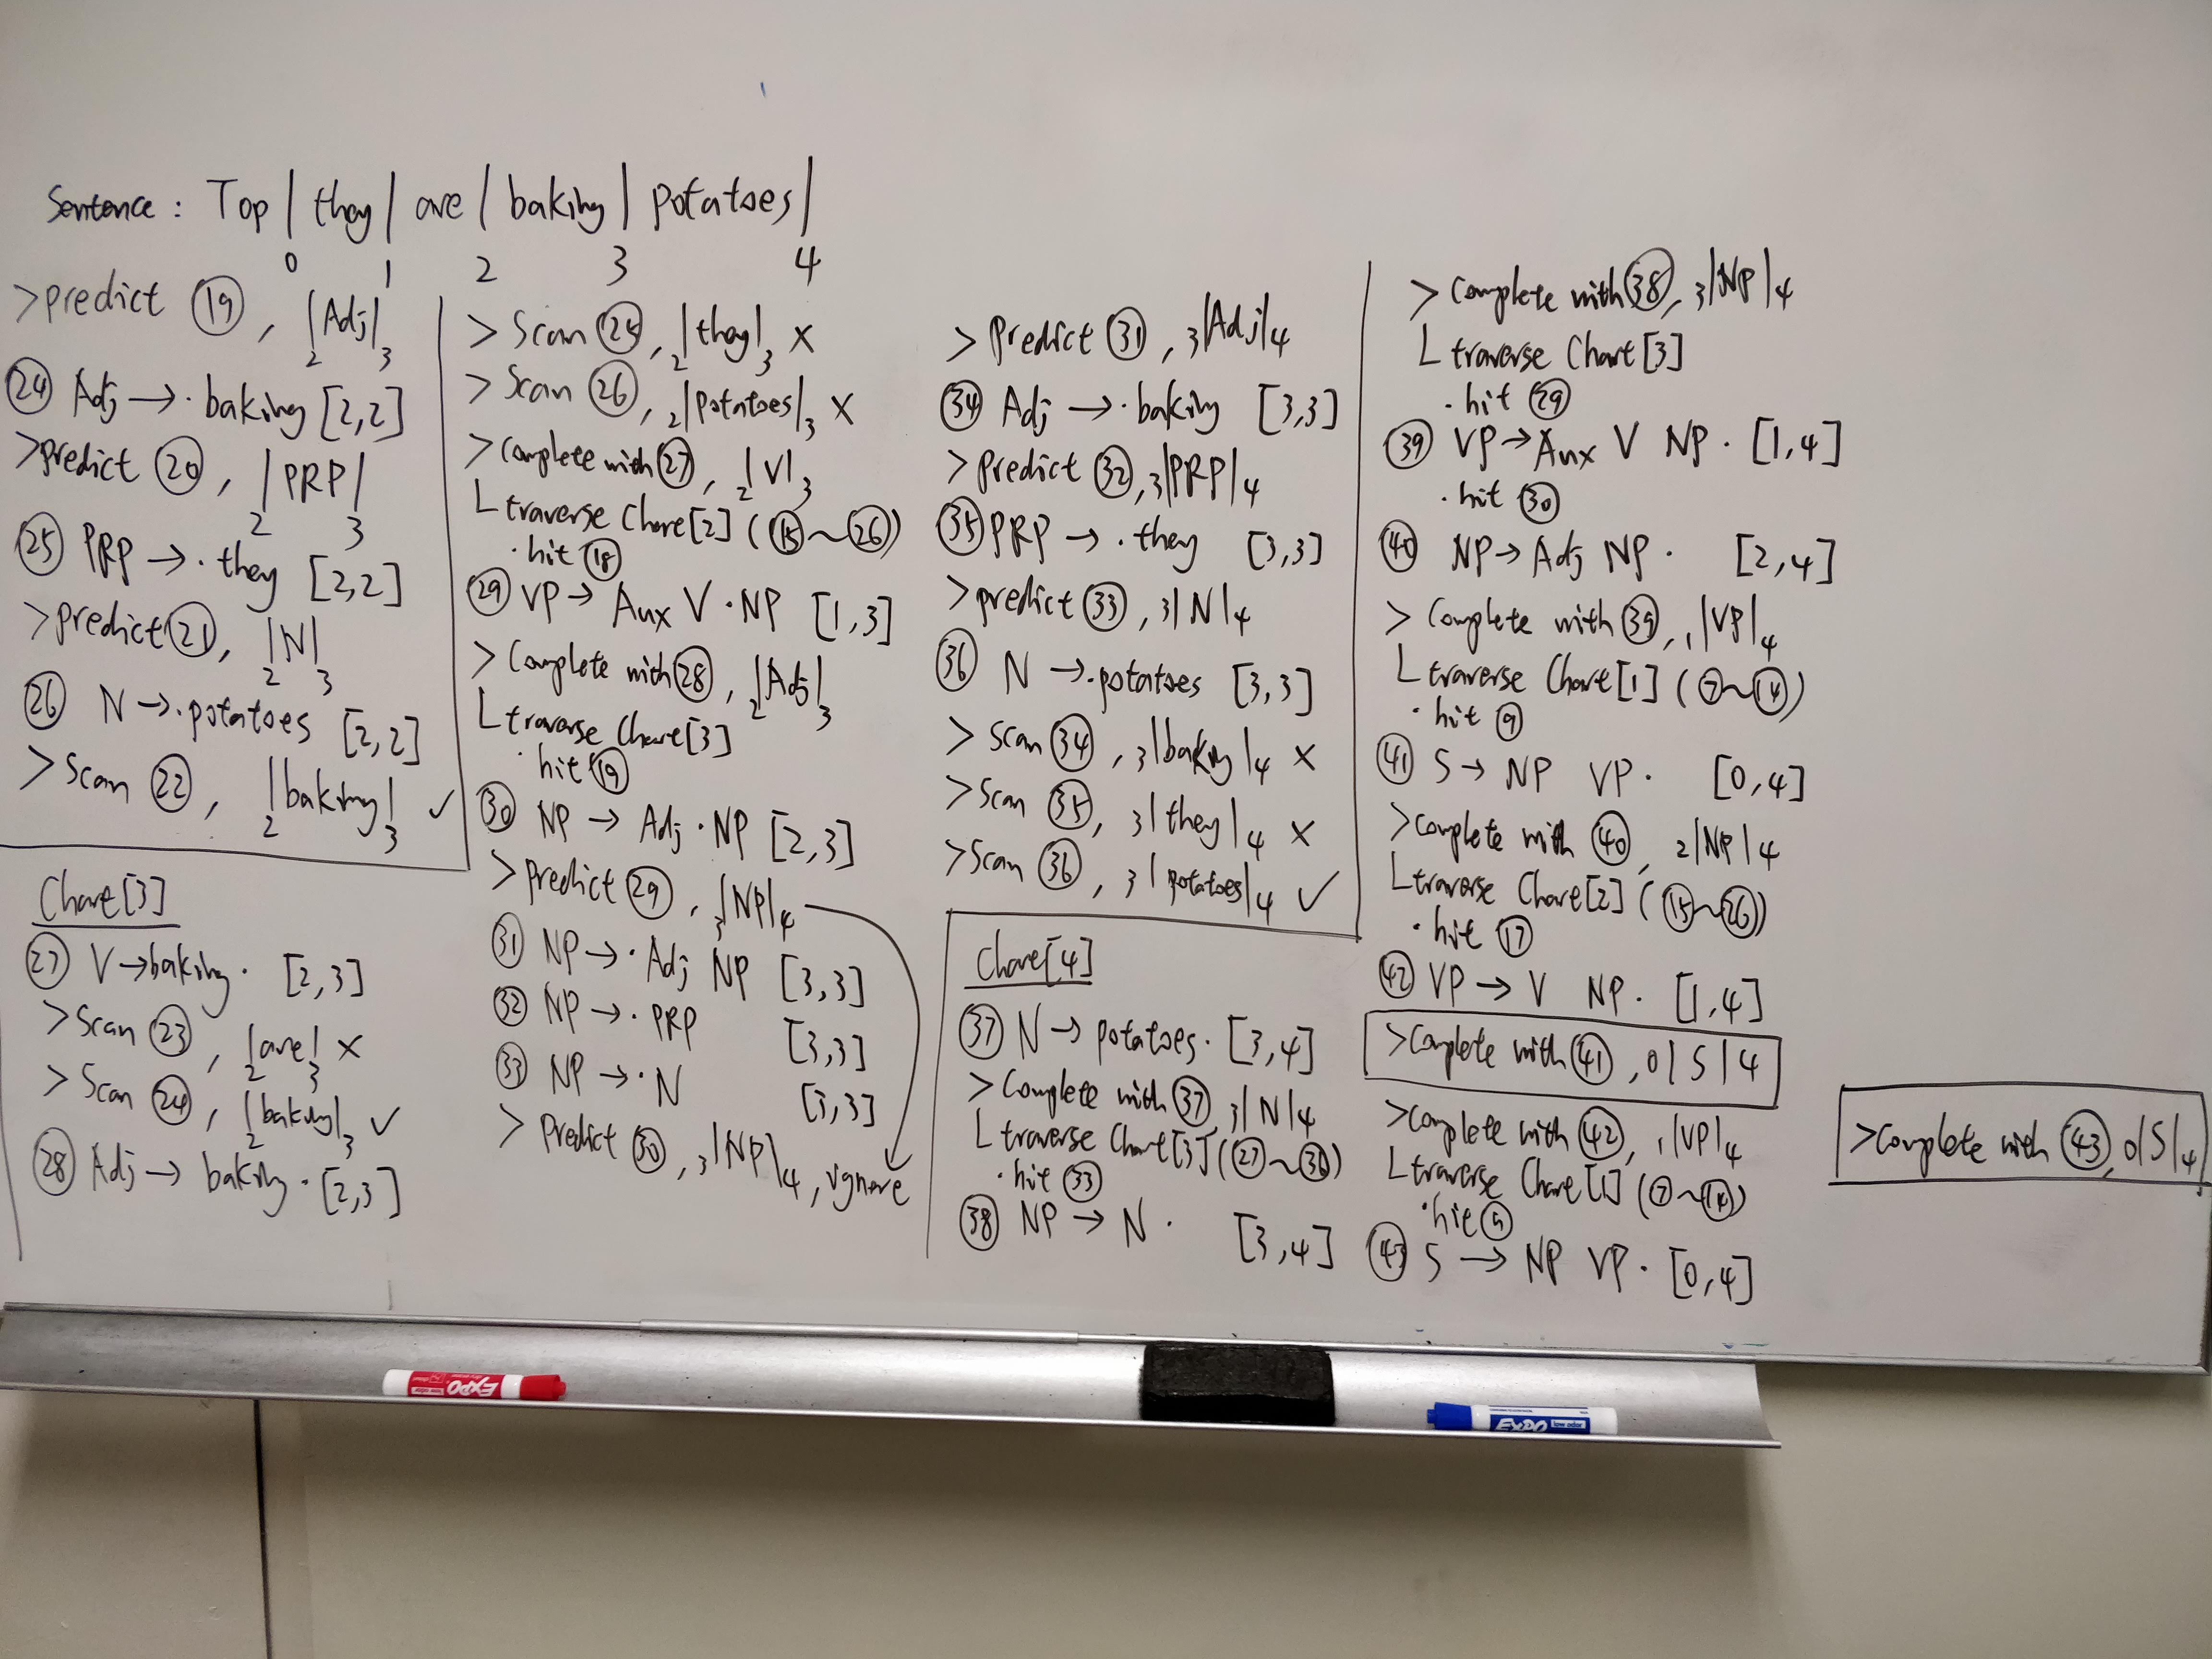 Sentence : Top | they | are | baking | potatoes |
0 1 2 3 4
>predict ⑲, 2|Adj|3
㉔ Adj → · baking [2,2]
>predict ⑳, 2|PRP|3
㉕ PRP → · they [2,2]
>predict ㉑, 2|N|3
㉖ N → · potatoes [2,2]
>Scan ㉒, 2|baking|3 ✓
Chart[3]
㉗ V → baking · [2,3]
>Scan ㉓, 2|are|3 ×
>Scan ㉔, 2|baking|3 ✓
㉘ Adj → baking · [2,3]
>Scan ㉕, 2|they|3 ×
>Scan ㉖, 2|potatoes|3 ×
>Complete with ㉗, 2|V|3
L traverse Chart[2] (⑮~㉖)
· hit ⑱
㉙ VP → Aux V · NP [1,3]
>Complete with ㉘, 2|Adj|3
L traverse Chart[3]
· hit ⑲
㉚ NP → Adj · NP [2,3]
>predict ㉙, 3|NP|4
㉛ NP → · Adj NP [3,3]
㉜ NP → · PRP [3,3]
㉝ NP → · N [3,3]
>Predict ㉚, 3|NP|4, ignore
>Predict ㉛, 3|Adj|4
㉞ Adj → · baking [3,3]
>predict ㉜, 3|PRP|4
㉟ PRP → · they [3,3]
>predict ㉝, 3|N|4
㊱ N → · potatoes [3,3]
>Scan ㉞, 3|baking|4 ×
>Scan ㉟, 3|they|4 ×
>Scan ㊱, 3|potatoes|4 ✓
Chart[4]
㊲ N → potatoes · [3,4]
>Complete with ㊲, 3|N|4
L traverse Chart[3] (㉗~㊱)
· hit ㉝
㊳ NP → N · [3,4]
>Complete with ㊳, 3|NP|4
L traverse Chart[3]
· hit ㉙
㊴ VP → Aux V NP · [1,4]
· hit ㉚
㊵ NP → Adj NP · [2,4]
>Complete with ㊴, 1|VP|4
L traverse Chart[1] (⑦~⑭)
· hit ⑨
㊶ S → NP VP · [0,4]
>Complete with ㊵, 2|NP|4
L traverse Chart[2] (⑮~㉖)
· hit ⑰
㊷ VP → V NP · [1,4]
>Complete with ㊶, 0|S|4
>Complete with ㊷, 1|VP|4
L traverse Chart[1] (⑦~⑭)
· hit ⑨
㊸ S → NP VP · [0,4]
>Complete with ㊸, 0|S|4
EXPO
EXPO
low odor